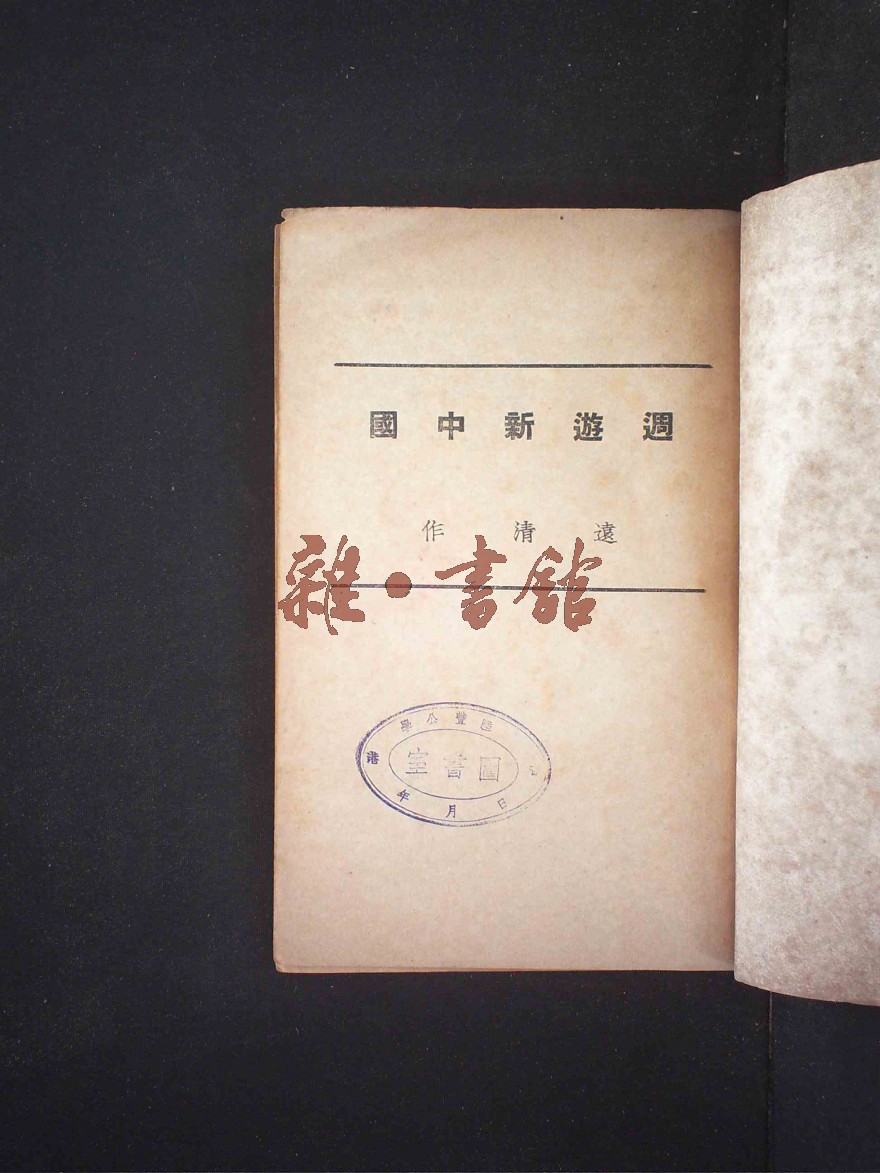 週遊新中國
遠清作
雜·書館
豐公學
港
圖書室
年月日